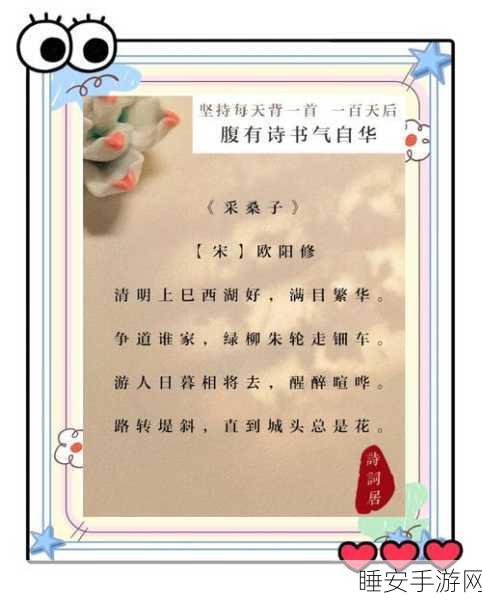 坚持每天背一首 一百天后
腹有诗书气自华
《采桑子》
【宋】欧阳修
清明上巳西湖好，满目繁华。
争道谁家，绿柳朱轮走钿车。
游人日暮相将去，醒醉喧哗。
路转堤斜，直到城头总是花。
詩詞居
睡安手游网